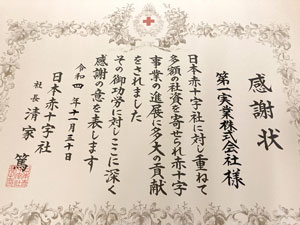 感謝状
第一実業株式会社 様
日本赤十字社に対し重ねて
多額の社資を寄せられ赤十字
事業の進展に多大の貢献
をされました
その御功労に対しここに深く
感謝の意を表します
令和四年十一月三十日
日本赤十字社
社長 清家 篤